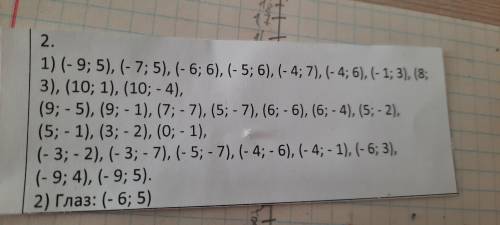 2.
1) (- 9; 5), (- 7; 5), (- 6; 6), (- 5; 6), (- 4; 7), (- 4; 6), (- 1; 3), (8;
3), (10; 1), (10; - 4),
(9; - 5), (9; - 1), (7; - 7), (5; - 7), (6; - 6), (6; - 4), (5; - 2),
(5; - 1), (3; - 2), (0; - 1),
(- 3; - 2), (- 3; - 7), (- 5; - 7), (- 4; - 6), (- 4; - 1), (- 6; 3),
(- 9; 4), (- 9; 5).
2) Глаз: (- 6; 5)